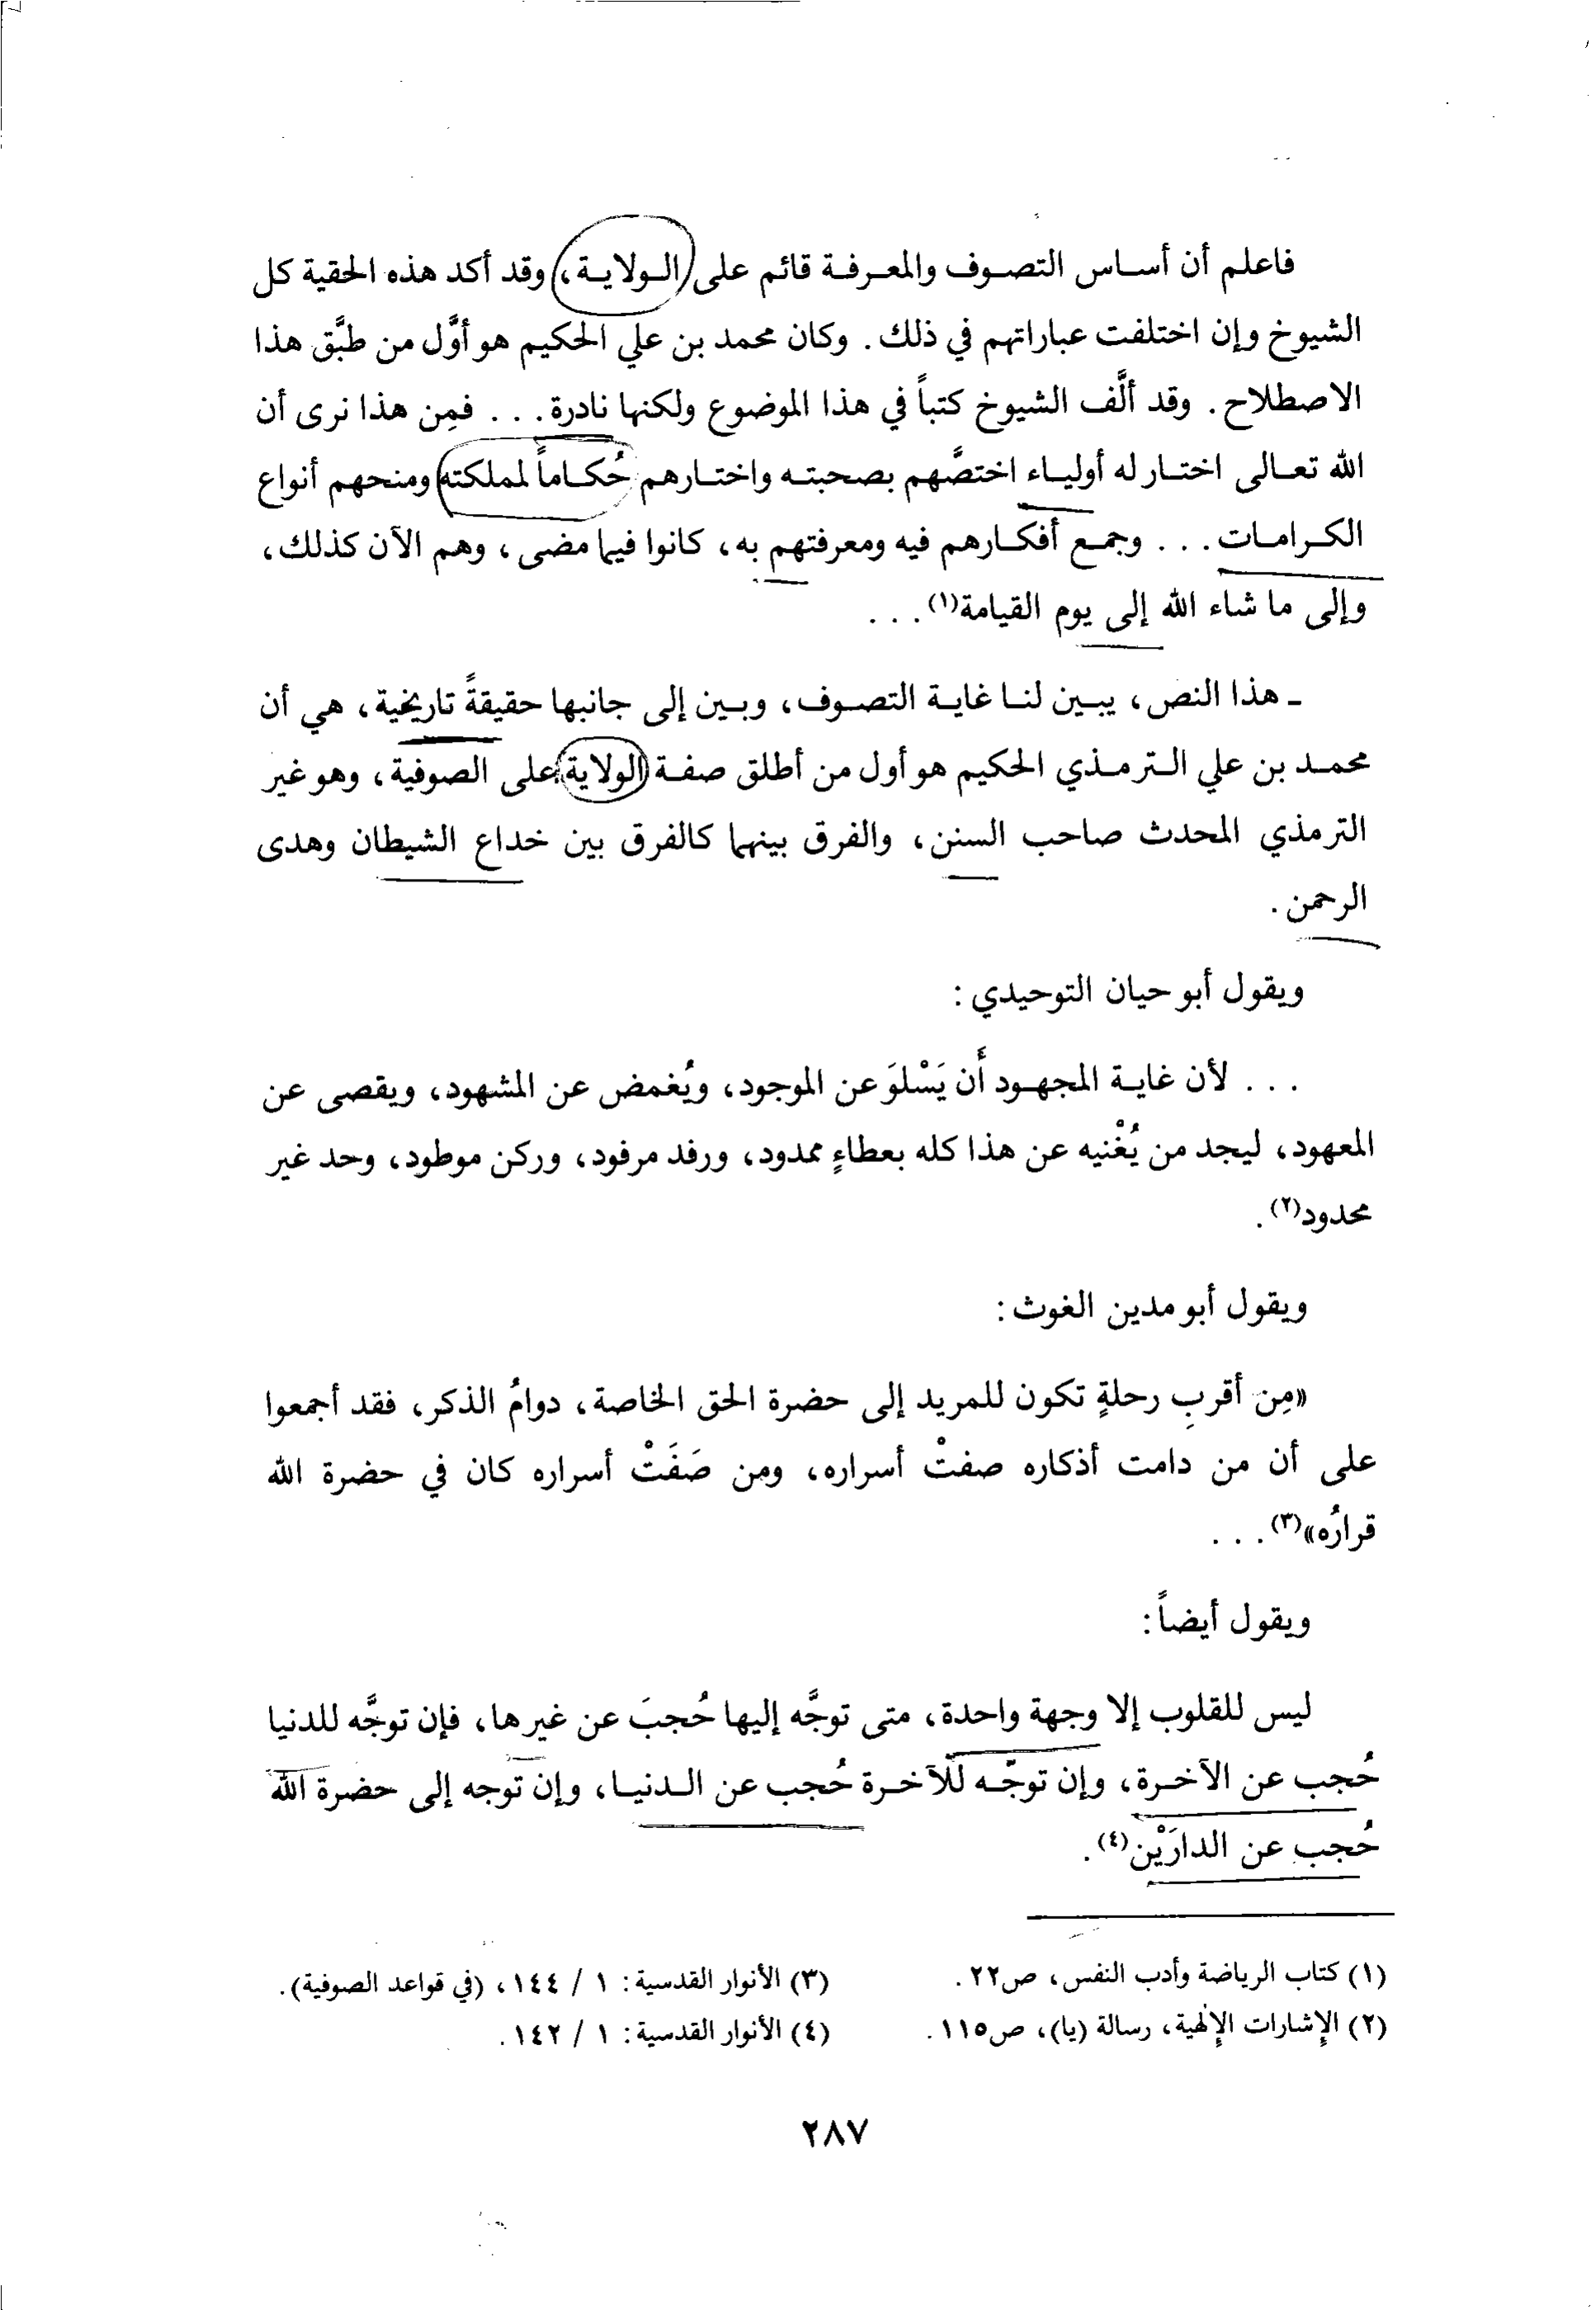 فاعلم أن أساس التصوف والمعرفة قائم على الولاية، وقد أكد هذه الحقية كل
الشيوخ وإن اختلفت عباراتهم في ذلك. وكان محمد بن علي الحكيم هو أوَّل من طبَّق هذا
الاصطلاح. وقد ألَّف الشيوخ كتباً في هذا الموضوع ولكنها نادرة... فمِن هذا نرى أن
الله تعالى اختار له أولياء اختصَّهم بصحبته واختارهم حُكاماً لمملكته ومنحهم أنواع
الكرامات... وجمع أفكارهم فيه ومعرفتهم به، كانوا فيما مضى، وهم الآن كذلك،
وإلى ما شاء الله إلى يوم القيامة(١)...
ـ هذا النص، يبين لنا غاية التصوف، وبين إلى جانبها حقيقةً تاريخية، هي أن
محمد بن علي الترمذي الحكيم هو أول من أطلق صفة الولاية على الصوفية، وهو غير
الترمذي المحدث صاحب السنن، والفرق بينهما كالفرق بين خداع الشيطان وهدى
الرحمن.
ويقول أبو حيان التوحيدي:
... لأن غاية المجهود أَن يَسْلوَ عن الموجود، ويُغمض عن المشهود، ويقصى عن
المعهود، ليجد من يُغْنيه عن هذا كله بعطاءٍ ممدود، ورفد مرفود، وركن موطود، وحد غير
محدود(٢).
ويقول أبو مدين الغوث:
«مِن أقربِ رحلةٍ تكون للمريد إلى حضرة الحق الخاصة، دوامُ الذكر، فقد أجمعوا
على أن من دامت أذكاره صفتْ أسراره، ومن صَفَتْ أسراره كان في حضرة الله
قرارُه»(٣)...
ويقول أيضاً:
ليس للقلوب إلا وجهة واحدة، متى توجَّه إليها حُجبَ عن غيرها، فإن توجَّه للدنيا
حُجب عن الآخرة، وإن توجّه للآخرة حُجب عن الدنيا، وإن توجه إلى حضرة الله
حُجب عن الدارَيْن(٤).
(١) كتاب الرياضة وأدب النفس، ص٢٢.
(٢) الإشارات الإلهية، رسالة (يا)، ص١١٥.
(٣) الأنوار القدسية: ١ / ١٤٤، (في قواعد الصوفية).
(٤) الأنوار القدسية: ١ / ١٤٢.
٢٨٧